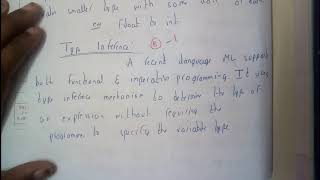 smaller type with some
eg Float to int
Type Inference
A recent language ML support
both functional & imperative programming. It uses
type inference mechanism to determine the type of
an expression without requiring the
programmer to specify the variable type